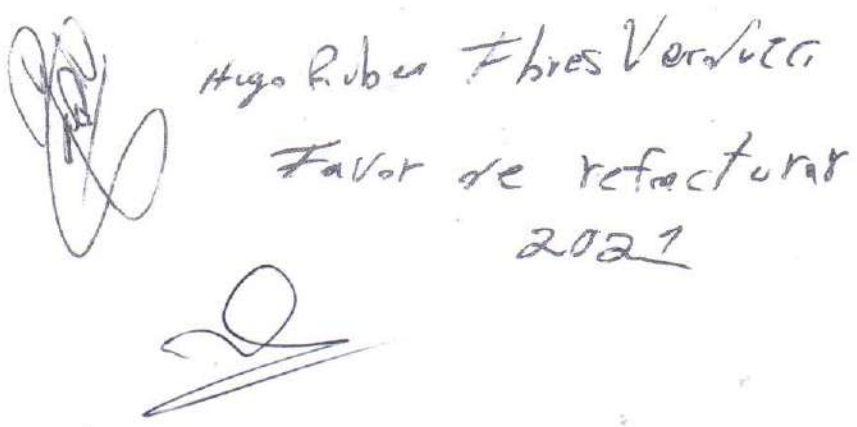 Hugo Ruben Flores Verduzco
Favor de refacturar
2021